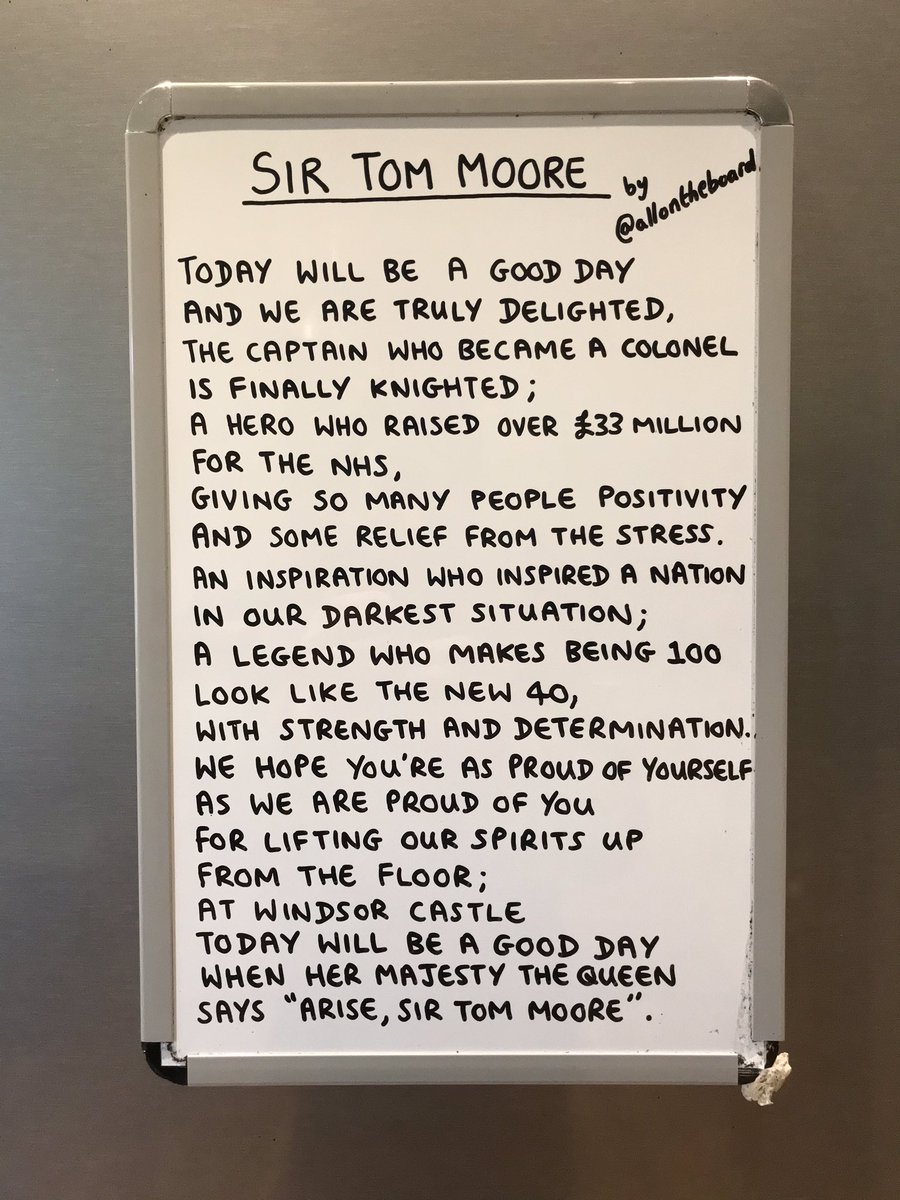 SIR TOM MOORE
by
@allontheboard
TODAY WILL BE A GOOD DAY
AND WE ARE TRULY DELIGHTED,
THE CAPTAIN WHO BECAME A COLONEL
IS FINALLY KNIGHTED;
A HERO WHO RAISED OVER £33 MILLION
FOR THE NHS,
GIVING SO MANY PEOPLE POSITIVITY
AND SOME RELIEF FROM THE STRESS.
AN INSPIRATION WHO INSPIRED A NATION
IN OUR DARKEST SITUATION;
A LEGEND WHO MAKES BEING 100
LOOK LIKE THE NEW 40,
WITH STRENGTH AND DETERMINATION.
WE HOPE YOU'RE AS PROUD OF YOURSELF
AS WE ARE PROUD OF YOU
FOR LIFTING OUR SPIRITS UP
FROM THE FLOOR;
AT WINDSOR CASTLE
TODAY WILL BE A GOOD DAY
WHEN HER MAJESTY THE QUEEN
SAYS "ARISE, SIR TOM MOORE".